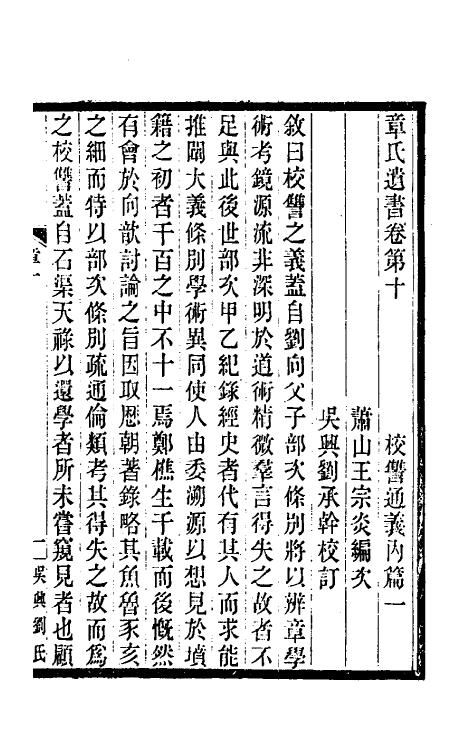 章氏遺書卷第十　校讐通義內篇一
蕭山王宗炎編次
吳興劉承幹校訂
敘曰校讐之義蓋自劉向父子部次條別將以辨章學
術考鏡源流非深明於道術精微羣言得失之故者不
足與此後世部次甲乙紀錄經史者代有其人而求能
推闡大義條別學術異同使人由委溯源以想見於墳
籍之初者千百之中不十一焉鄭樵生千載而後慨然
有會於向歆討論之旨因取歷朝著錄略其魚魯豕亥
之細而特以部次條別疏通倫類考其得失之故而爲
之校讐蓋自石渠天祿以還學者所未嘗窺見者也顧
章十
一
吳興劉氏